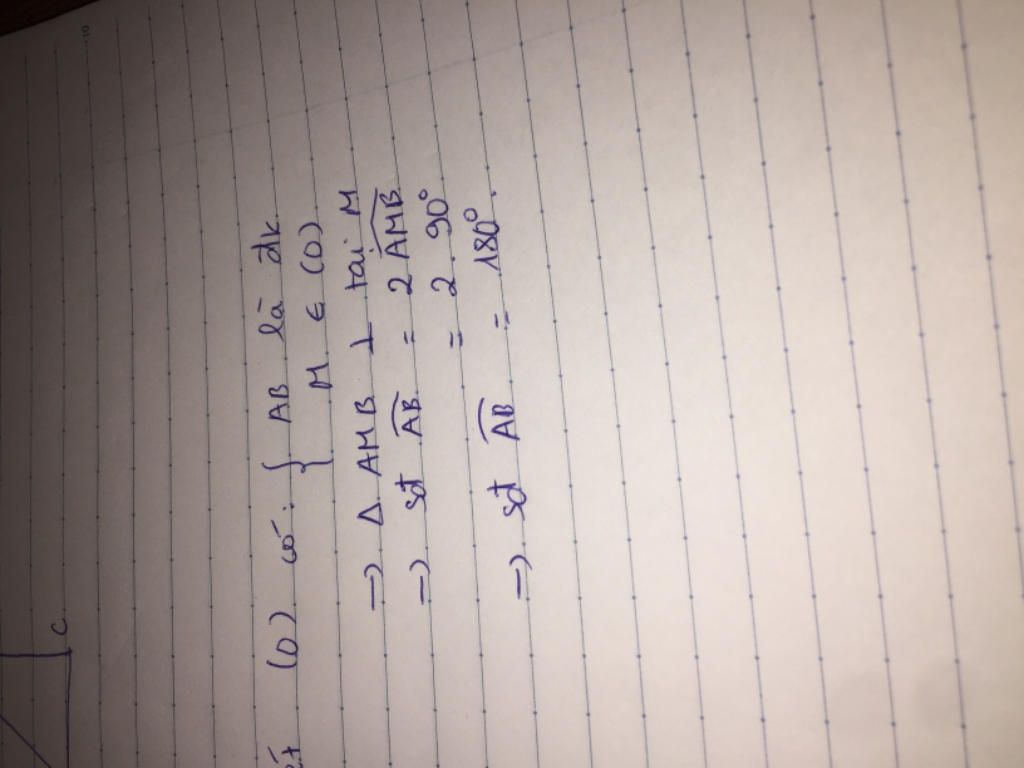 C
(O) có: { AB là đk
{ M ∈ (O)
=) Δ AMB ⊥ tại M
=) sđ AB = 2 AMB
= 2. 90°
=) sđ AB = 180°.